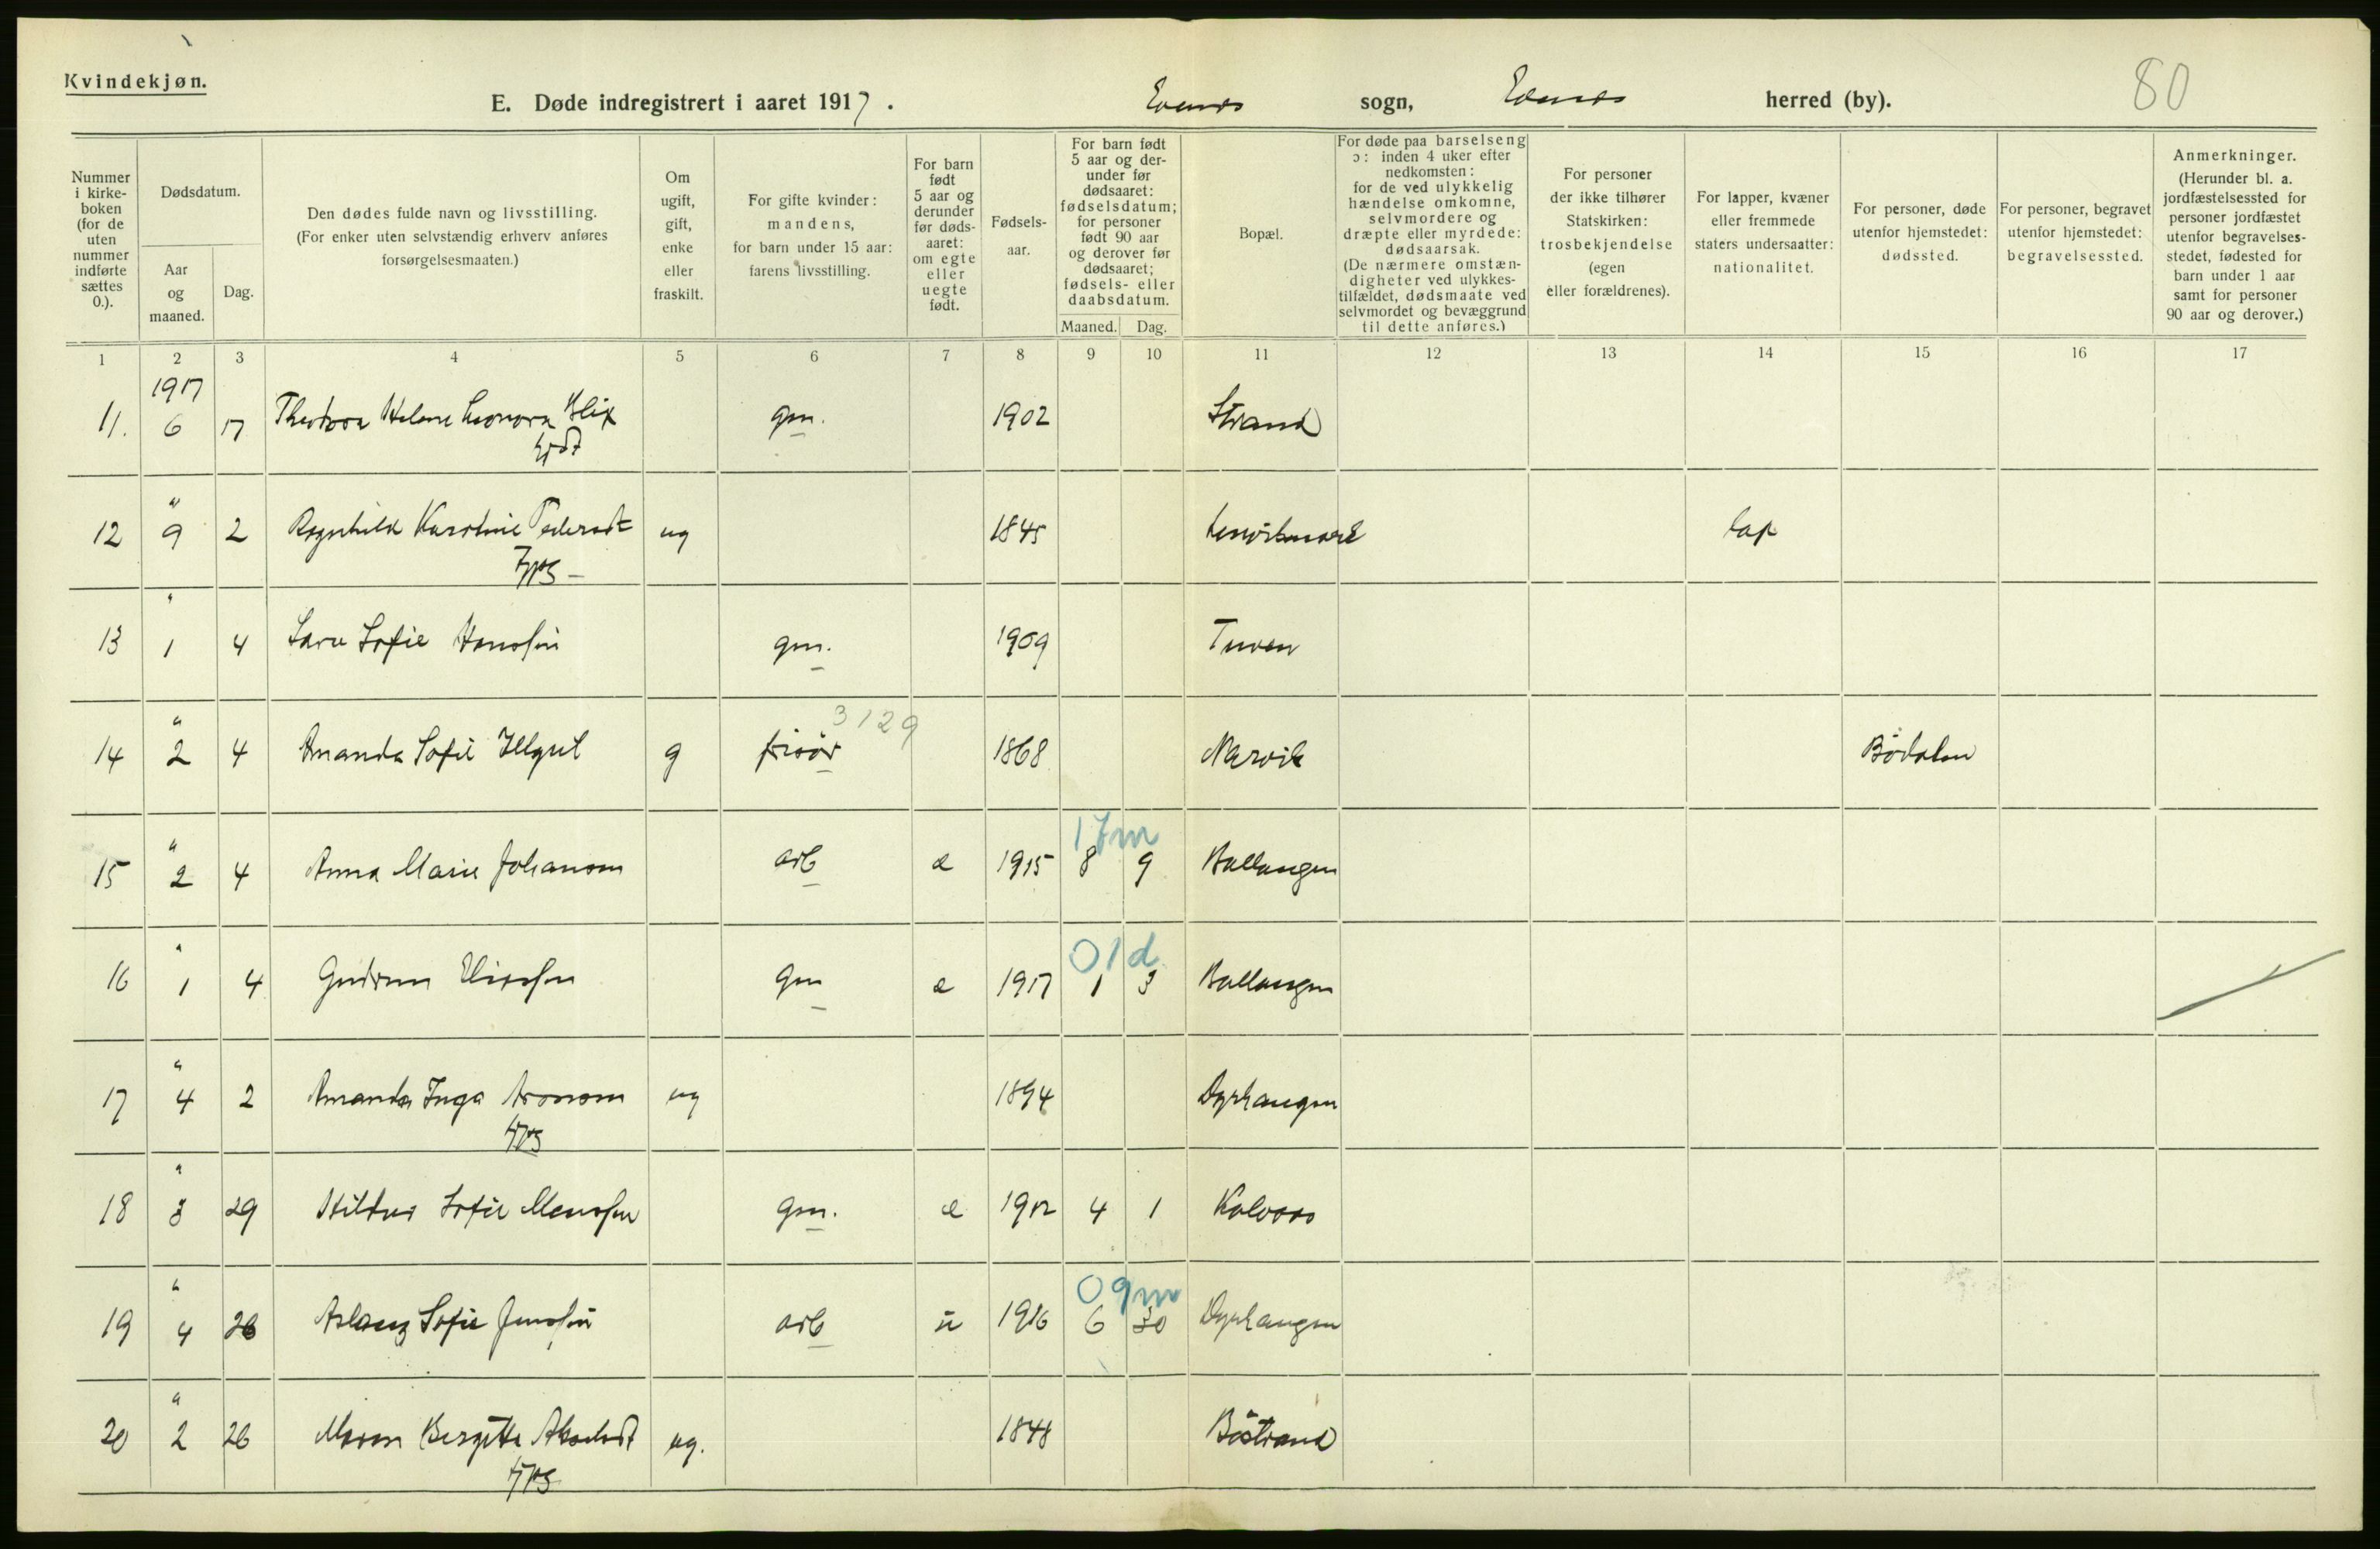 Kvindekjøn.
E. Døde indregistrert i aaret 1917. Evenes sogn, Evenes herred (by). 80
Nummer i kirkeboken (for de uten nummer indførte sættes 0.).
Dødsdatum.
Aar og maaned.
Dag.
Den dødes fulde navn og livsstilling. (For enker uten selvstændig erhverv anføres forsørgelsesmaaten.)
Om ugift, gift, enke eller fraskilt.
For gifte kvinder: mandens, for barn under 15 aar: farens livsstilling.
For barn født 5 aar og derunder før dødsaaret: om egte eller uegte født.
Fødselsaar.
For barn født 5 aar og derunder før dødsaaret: fødselsdatum; for personer født 90 aar og derover før dødsaaret; fødsels- eller daabsdatum.
Maaned. Dag.
Bopæl.
For døde paa barselseng ɔ: inden 4 uker efter nedkomsten: for de ved ulykkelig hændelse omkomne, selvmordere og dræpte eller myrdede: dødsaarsak. (De nærmere omstændigheter ved ulykkestilfældet, dødsmaate ved selvmordet og bevæggrund til dette anføres.)
For personer der ikke tilhører Statskirken: trosbekjendelse (egen eller forældrenes).
For lapper, kvæner eller fremmede staters undersaatter: nationalitet.
For personer, døde utenfor hjemstedet: dødssted.
For personer, begravet utenfor hjemstedet: begravelsessted.
Anmerkninger. (Herunder bl. a. jordfæstelsessted for personer jordfæstet utenfor begravelsesstedet, fødested for barn under 1 aar samt for personer 90 aar og derover.)
1 2 3 4 5 6 7 8 9 10 11 12 13 14 15 16 17
1917
11. 6 17 Theodora Helene Leonora Blix gm. 1902 Strand
"
12 9 2 Ragnhild Karoline Pedersdt ug 1845 lap
"
13 1 4 Sara Sofie Hansen gm. 1909
3129
"
14 2 4 Amanda Sofie g frisör 1868 Narvik Bödalen
17m
"
15 2 4 Anna Marie Johansen arb e 1915 8 9 Ballangen
01d.
"
16 1 4 Gudrun gm e 1917 1 3 Ballangen
"
17 4 2 Amanda Inga Aronsen ug 1894
"
18 3 29 Sofie gm. e 1912 4 1
09m
"
19 4 26 Sofie Jensen arb u 1916 6 30
"
20 2 26 Maren Bergitte ug. 1848 Böstrand